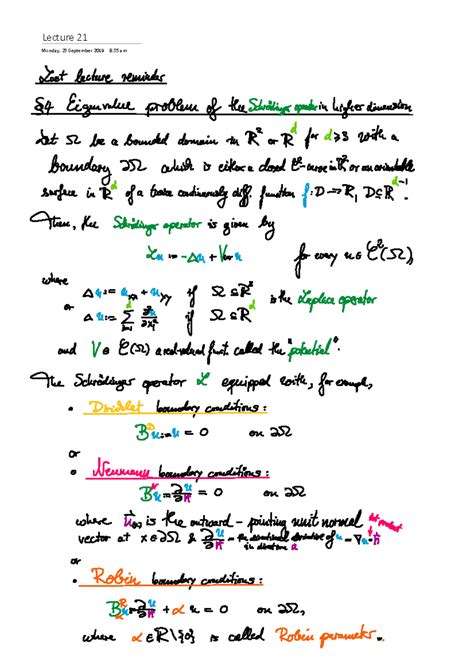 Lecture 21
Monday, 23 September 2019 8:35 am
Last lecture reminder
§4 Eigenvalue problem of the Schrödinger operator in higher dimension
Let Ω be a bounded domain in ℝ² or ℝ^d for d≥3 with a
boundary ∂Ω which is either a closed C²-curve in ℝ² or an orientable
surface in ℝ^d of a twice continuously diff. function f: D→ℝ, D⊆ℝ^{d-1}.
Then, the Schrödinger operator is given by
Lu := -Δu + V·u for every u ∈ C²(Ω),
where
Δu := u_xx + u_yy if Ω ⊆ ℝ²
or Δu := ∑_{i=1}^d ∂²u/∂x_i² if Ω ⊆ ℝ^d is the Laplace operator
and V ∈ C(Ω) a real-valued funct. called the "potential".
The Schrödinger operator L equipped with, for example,
• Dirichlet boundary conditions:
B^D u := u = 0 on ∂Ω
or
• Neumann boundary conditions:
B^N u = ∂u/∂n = 0 on ∂Ω
where n(x) is the outward-pointing unit normal dot product
vector at x ∈ ∂Ω & ∂u/∂n = the directional derivative of u = ∇u·n
in direction n
or
• Robin boundary conditions:
B^R_α u = ∂u/∂n + α u = 0 on ∂Ω,
where α ∈ ℝ\{0} is called Robin parameter.